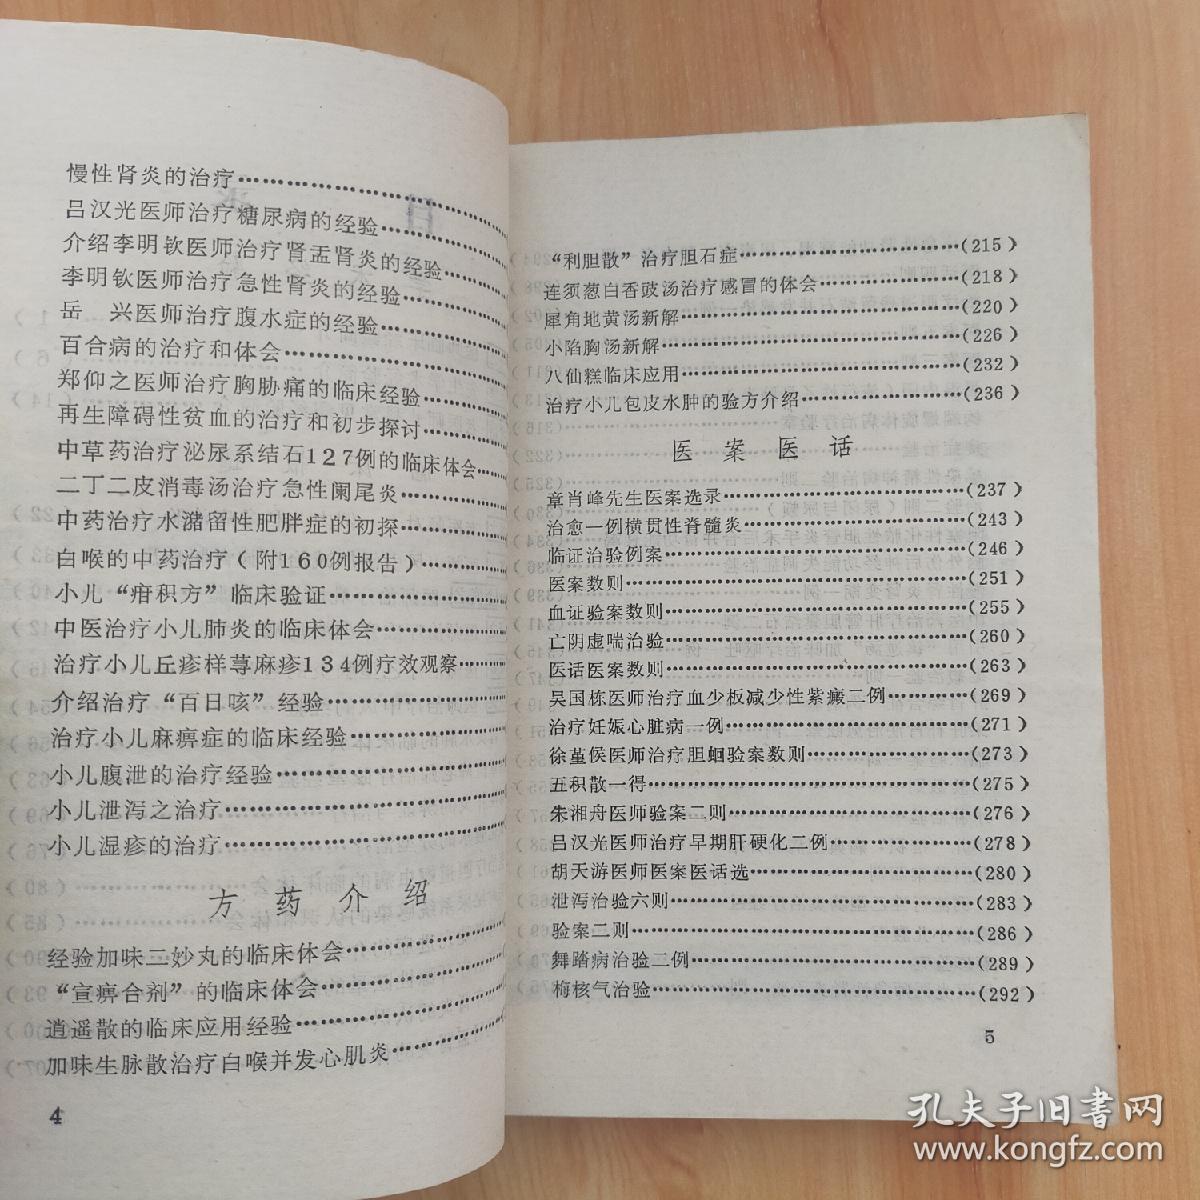 慢性肾炎的治疗
吕汉光医师治疗糖尿病的经验
介绍李明钦医师治疗肾盂肾炎的经验
李明钦医师治疗急性肾炎的经验
岳　兴医师治疗腹水症的经验
百合病的治疗和体会
郑仰之医师治疗胸胁痛的临床经验
再生障碍性贫血的治疗和初步探讨
中草药治疗泌尿系结石127例的临床体会
二丁二皮消毒汤治疗急性阑尾炎
中药治疗水潴留性肥胖症的初探
白喉的中药治疗(附160例报告)
小儿“疳积方”临床验证
中医治疗小儿肺炎的临床体会
治疗小儿丘疹样荨麻疹134例疗效观察
介绍治疗“百日咳”经验
治疗小儿麻痹症的临床经验
小儿腹泄的治疗经验
小儿泄泻之治疗
小儿湿疹的治疗
方药介绍
经验加味三妙丸的临床体会
“宣痹合剂”的临床体会
逍遥散的临床应用经验
加味生脉散治疗白喉并发心肌炎
4
“利胆散”治疗胆石症…………(215)
连须葱白香豉汤治疗感冒的体会…………(218)
犀角地黄汤新解…………(220)
小陷胸汤新解…………(226)
八仙糕临床应用…………(232)
治疗小儿包皮水肿的验方介绍…………(236)
医案医话
章肖峰先生医案选录…………(237)
治愈一例横贯性脊髓炎…………(243)
临证治验例案…………(246)
医案数则…………(251)
血证验案数则…………(255)
亡阴虚喘治验…………(260)
医话医案数则…………(263)
吴国栋医师治疗血少板减少性紫癜二例…………(269)
治疗妊娠心脏病一例…………(271)
徐堇侯医师治疗胆蛔验案数则…………(273)
五积散一得…………(275)
朱湘舟医师验案二则…………(276)
吕汉光医师治疗早期肝硬化二例…………(278)
胡天游医师医案医话选…………(280)
泄泻治验六则…………(283)
验案二则…………(286)
舞踏病治验二例…………(289)
梅核气治验…………(292)
5
孔夫子旧书网
www.kongfz.com